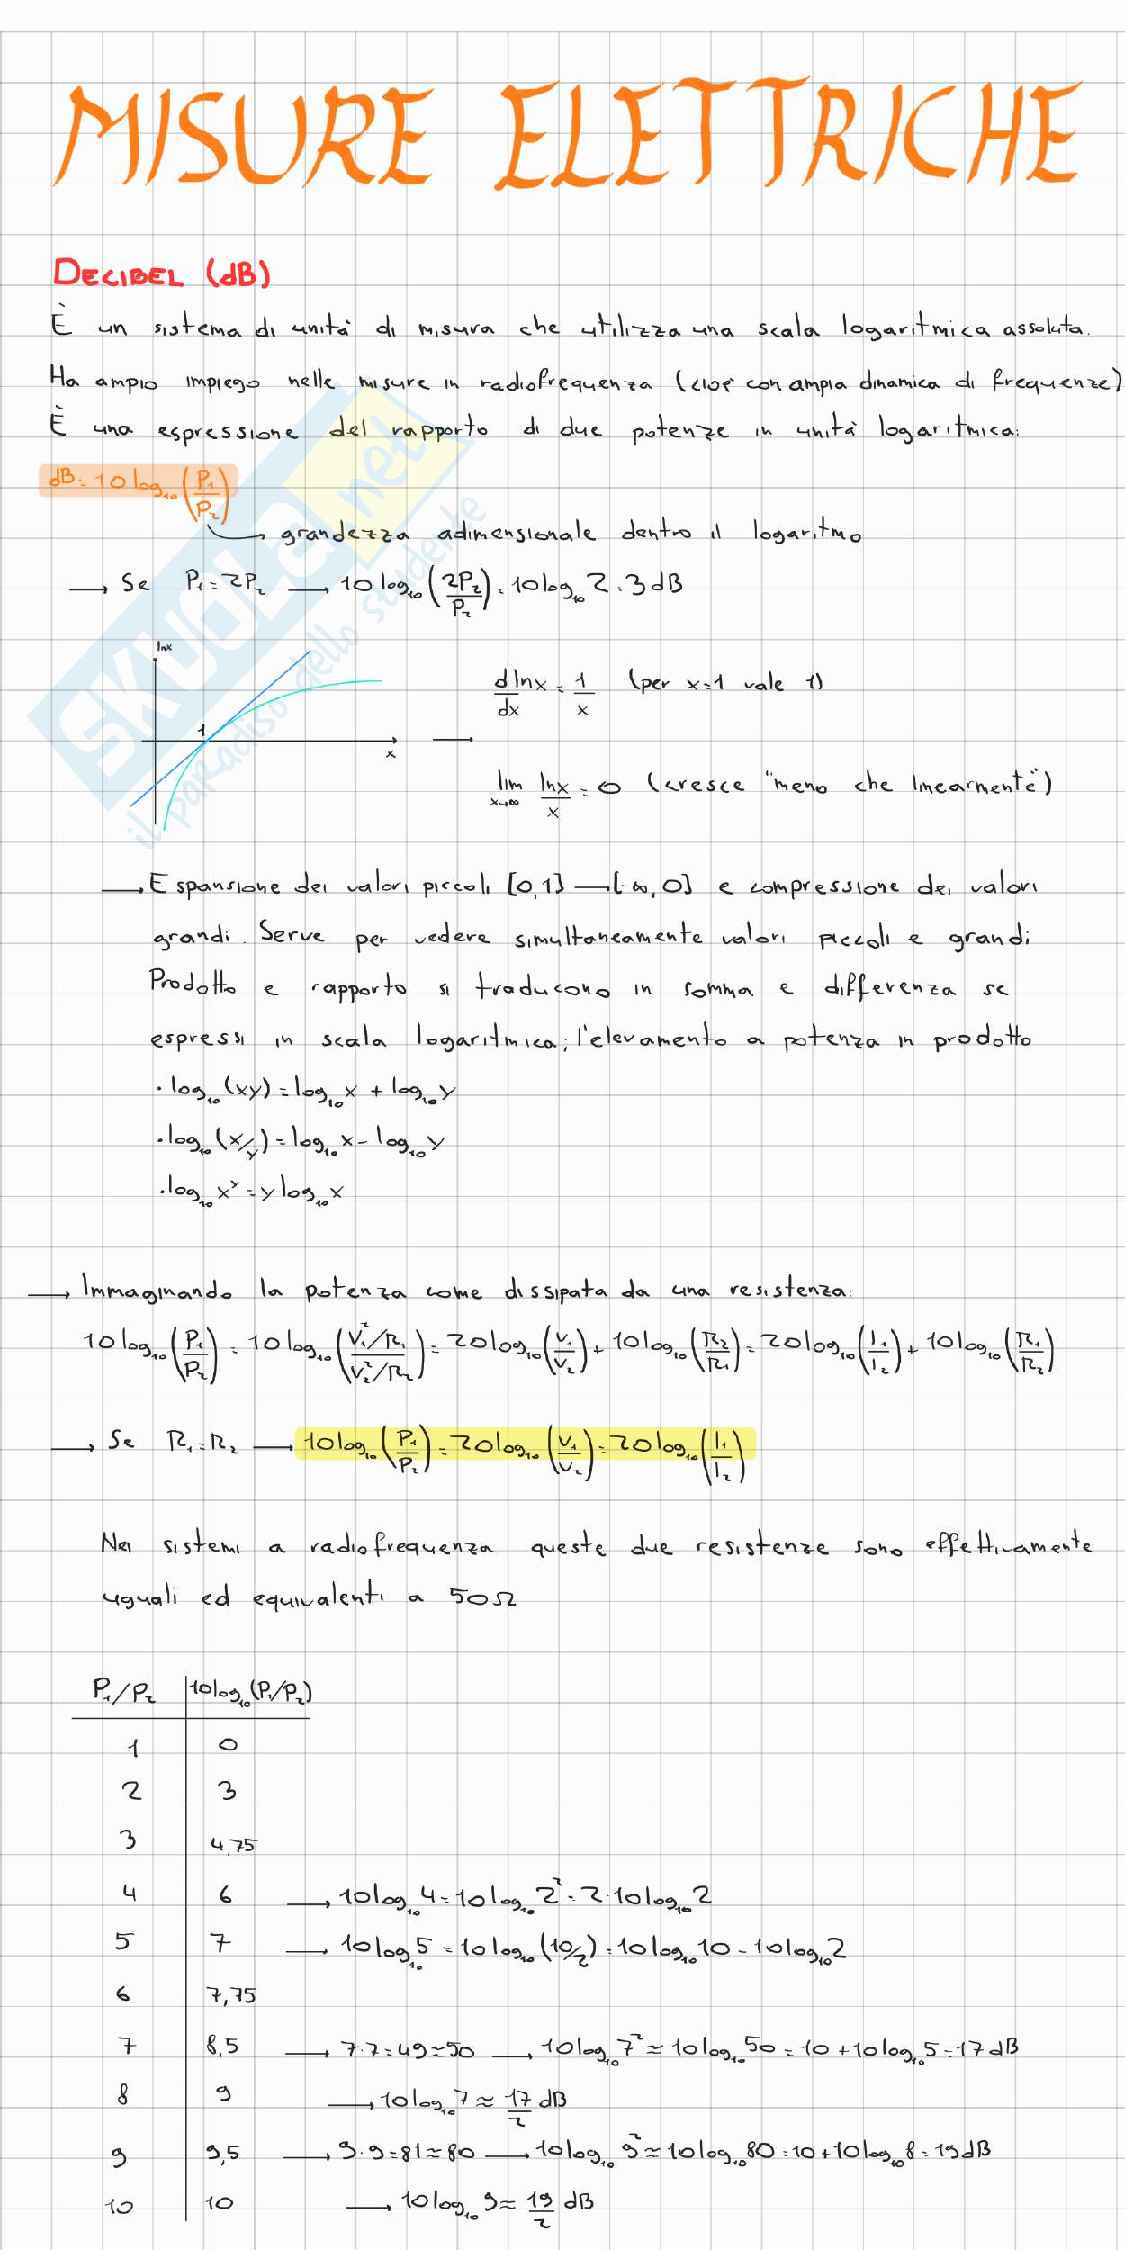 MISURE ELETTRICHE
DECIBEL (dB)
È un sistema di unità di misura che utilizza una scala logaritmica assoluta.
Ha ampio impiego nelle misure in radiofrequenza (cioè con ampia dinamica di frequenze)
È una espressione del rapporto di due potenze in unità logaritmica:
dB = 10 log₁₀ (P₁/P₂)
grandezza adimensionale dentro il logaritmo
→ Se P₁ = 2P₂ → 10 log₁₀ (2P₂/P₂) = 10 log₁₀ 2 = 3 dB
lnx
1
x
d lnx/dx = 1/x (per x=1 vale 1)
lim x→∞ lnx/x = 0 (cresce "meno che linearmente")
→ Espansione dei valori piccoli [0,1] → [-∞,0] e compressione dei valori
grandi. Serve per vedere simultaneamente valori piccoli e grandi
Prodotto e rapporto si traducono in somma e differenza se
espressi in scala logaritmica; l'elevamento a potenza in prodotto
· log₁₀(xy) = log₁₀x + log₁₀y
· log₁₀(x/y) = log₁₀x - log₁₀y
· log₁₀xʸ = y log₁₀x
→ Immaginando la potenza come dissipata da una resistenza:
10 log₁₀ (P₁/P₂) = 10 log₁₀ (V₁²/R₁ / V₂²/R₂) = 20 log₁₀ (V₁/V₂) + 10 log₁₀ (R₂/R₁) = 20 log₁₀ (I₁/I₂) + 10 log₁₀ (R₁/R₂)
→ Se R₁ = R₂ → 10 log₁₀ (P₁/P₂) = 20 log₁₀ (V₁/V₂) = 20 log₁₀ (I₁/I₂)
Nei sistemi a radiofrequenza queste due resistenze sono effettivamente
uguali ed equivalenti a 50Ω
P₁/P₂ 10log₁₀(P₁/P₂)
1 0
2 3
3 4,75
4 6 → 10 log₁₀ 4 = 10 log₁₀ 2² = 2·10 log₁₀ 2
5 7 → 10 log₁₀ 5 = 10 log₁₀ (10/2) = 10 log₁₀ 10 - 10 log₁₀ 2
6 7,75
7 8,5 → 7·7 = 49 ≃ 50 → 10 log₁₀ 7² ≃ 10 log₁₀ 50 = 10 + 10 log₁₀ 5 = 17 dB
8 9 → 10 log₁₀ 7 ≈ 17/2 dB
9 9,5 → 9·9 = 81 ≃ 80 → 10 log₁₀ 9² ≃ 10 log₁₀ 80 = 10 + 10 log₁₀ 8 = 19 dB
10 10 → 10 log₁₀ 9 ≈ 19/2 dB
SKUOLA.net
il paradiso dello studente